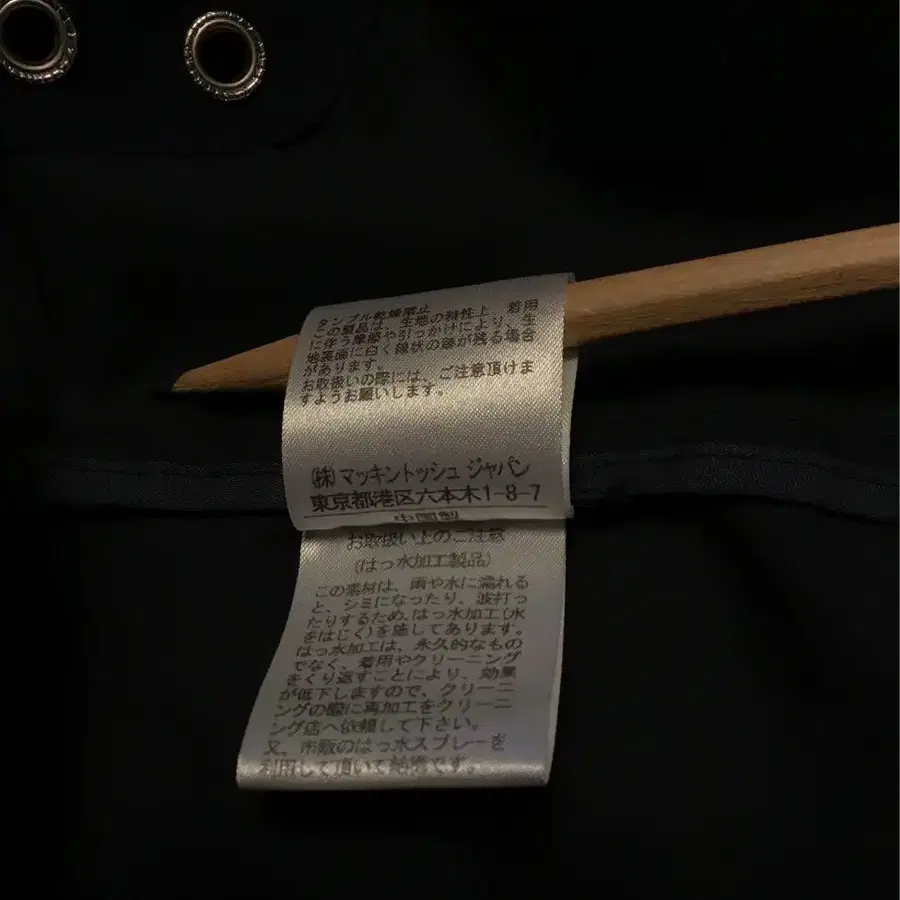 タンブル乾燥禁止
この製品は、生地の特性上、着用
に伴う摩擦や引っかけにより、生
地裏面に白く線状の跡が残る場合
があります。
お取扱いの際には、ご注意頂けま
すようお願いします。
(株)マッキントッシュ ジャパン
東京都港区六本木1-8-7
中国製
お取扱い上のご注意
(はっ水加工製品)
この素材は、雨や水に濡れる
と、シミになったり、波打っ
たりするため、はっ水加工(水
をはじく)を施してあります。
はっ水加工は、永久的なもの
でなく、着用やクリーニング
をくり返すことにより、効果
が低下しますので、クリーニ
ングの際に再加工をクリーニ
ング店へ依頼して下さい。
又、市販のはっ水スプレーを
利用して頂いて結構です。